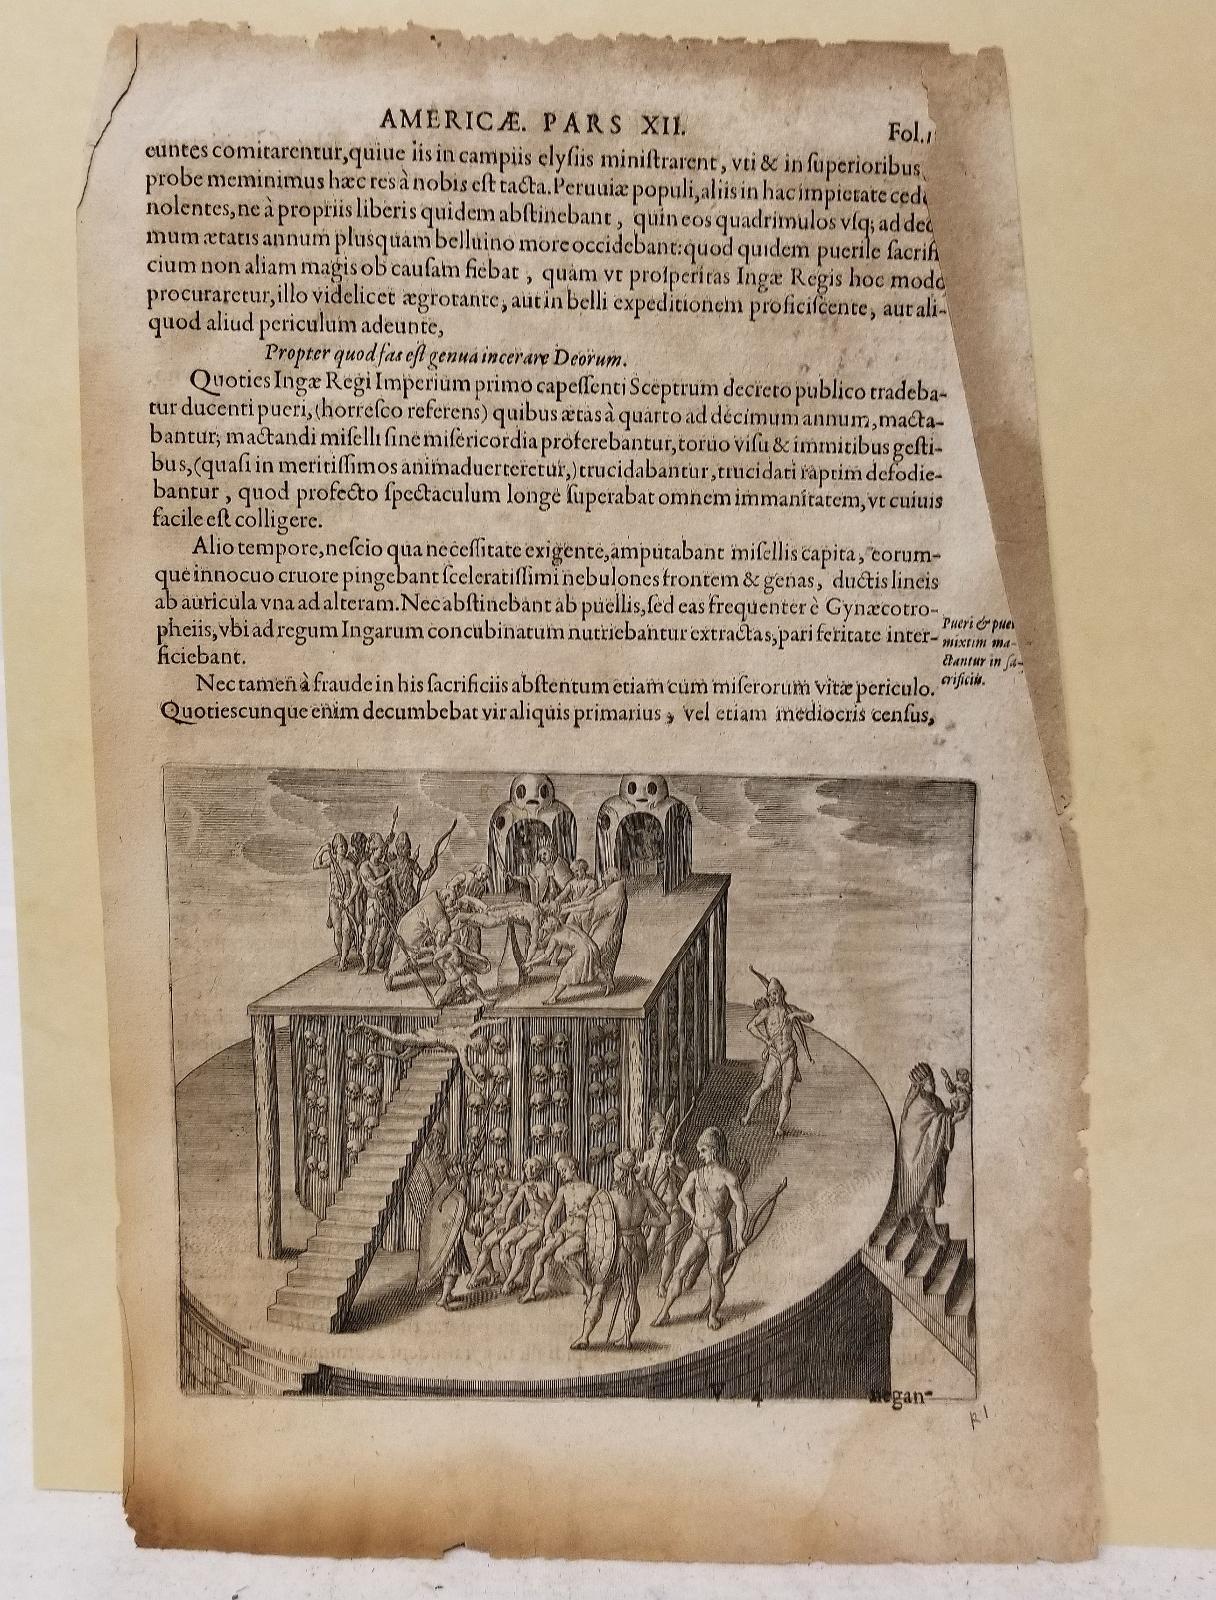 AMERICÆ. PARS XII.
Fol.1
euntes comitarentur, quiue iis in campiis elyſiis miniſtrarent, vti & in ſuperioribus
probe meminimus hæc res à nobis eſt tacta. Peruuiæ populi, aliis in hac impietate ced
nolentes, ne à propriis liberis quidem abſtinebant, quin eos quadrimulos vſq; ad dec
mum ætatis annum plusquam belluino more occidebant: quod quidem puerile ſacrifi
cium non aliam magis ob cauſam fiebat, quàm vt proſperitas Ingæ Regis hoc modo
procuraretur, illo videlicet ægrotante, aut in belli expeditionem proficiſcente, aut ali-
quod aliud periculum adeunte,
Propter quod fas eſt genua incerare Deorum.
Quoties Ingæ Regi Imperium primo capeſſenti Sceptrum decreto publico tradeba-
tur ducenti pueri, (horreſco referens) quibus ætas à quarto ad decimum annum, macta-
bantur; mactandi miſelli ſine miſericordia proferebantur, toruo viſu & immitibus geſti-
bus, (quaſi in meritiſſimos animaduerteretur,) trucidabantur, trucidati raptim defodie-
bantur, quod profecto ſpectaculum longè ſuperabat omnem immanitatem, vt cuiuis
facile eſt colligere.
Alio tempore, neſcio qua neceſſitate exigente, amputabant miſellis capita, eorum-
que innocuo cruore pingebant ſceleratiſſimi nebulones frontem & genas, ductis lineis
ab auricula vna ad alteram. Nec abſtinebant ab puellis, ſed eas frequenter è Gynæcotro-
pheiis, vbi ad regum Ingarum concubinatum nutriebantur extractas, pari feritate inter-
ficiebant.
Pueri & puel
mixtim ma-
ctantur in ſa-
crificiis.
Nec tamen à fraude in his ſacrificiis abſtentum etiam cum miſerorum vitæ periculo.
Quotiescunque enim decumbebat vir aliquis primarius, vel etiam mediocris cenſus,
V 4
negan-
R1